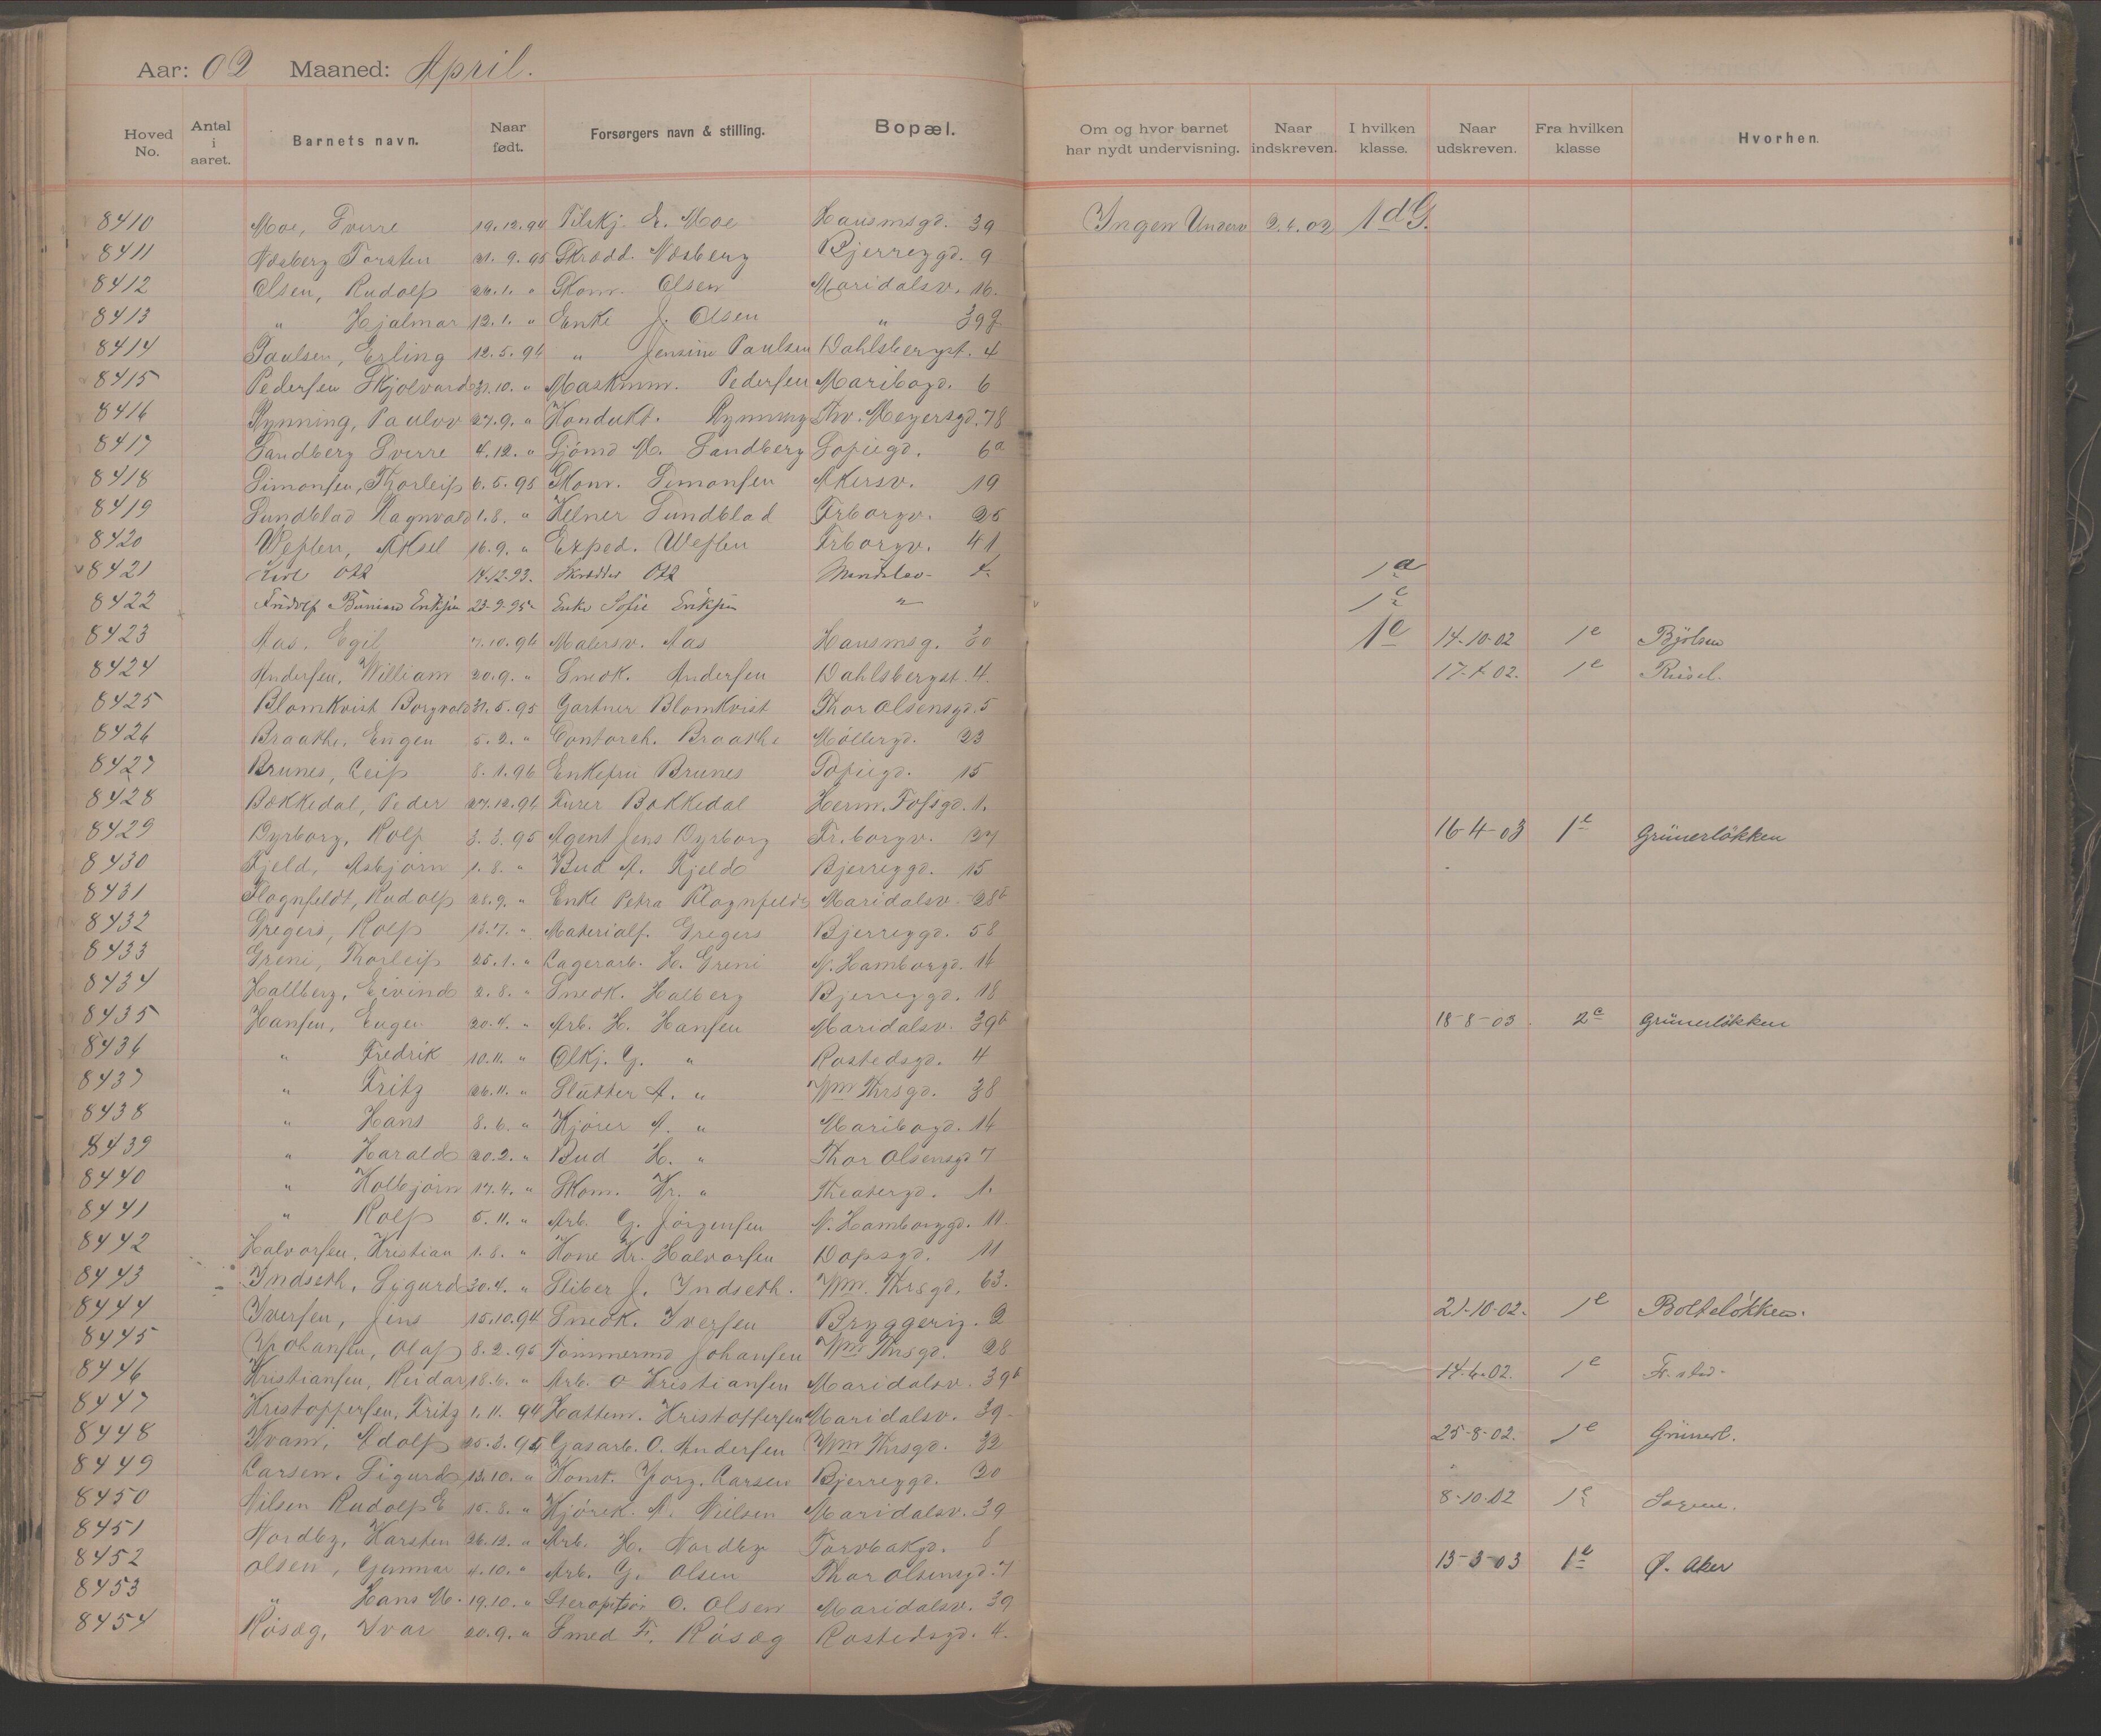 Aar: 02 Maaned: April.
Hoved No. Antal i aaret. Barnets navn. Naar født. Forsørgers navn & stilling. Bopæl. Om og hvor barnet har nydt undervisning. Naar indskreven. I hvilken klasse. Naar udskreven. Fra hvilken klasse Hvorhen.
8410 Moe, Sverre 19.12.94 E. Moe Hausmsgd. 39 Ingen Underv 2.4.02 1d G.
8411 Næsberg Torsten 21.9.95 Skrædd. Næsberg Bjerregd. 9
8412 Olsen, Rudolf 24.1. " Skom. Olsen Maridalsv. 16.
8413 " Hjalmar 12.1. " Enke J. Olsen " 39
8414 Paulsen, Erling 12.5.94 " Jensine Paulsen Dahlsbergst. 4
8415 Pedersen Skjolvard 31.10. " Maskinm. Pedersen Maribogd. 6
8416 Rynning, Paulov 27.9. " Kondukt. Rynning Thv. Meyersgd. 78
8417 Sandberg Sverre 4.12. " Sjömd M. Sandberg Sofiegd. 6a
8418 Simonsen, Thorleif 6.5.95 Skom. Simonsen Akersv. 19
8419 Sundblad Ragnvald 1.8. " Kelner Sundblad Frborgv. 25
8420 Weflen, Aksel 16.9. " Exped. Weflen Frborgv. 41
8421 Karl Ott 14.12.93. Skrædder Ott 1d
8422 Fridolf Eriksen 23-9-95 Enke Sofie Eriksen " 1e
8423 Aas, Egil 7.10.94 Malersv. Aas Hausmsg. 30 1e 14-10-02 1e Bjölsen
8424 Andersen, William 20.9. " Snedk. Andersen Dahlsbergst. 4. 17-4-02. 1e
8425 Blomkvist Borgvald 31.5.95 Gartner Blomkvist Thor Olsensgd. 5
8426 Braathe, Eugen 5.2. " Contorch. Braathe Möllergd. 23
8427 Brunes, Leif 8.1.96 Enkefru Brunes Sofiegd. 15
8428 Bækkedal, Peder 27.12.94 Furer Bækkedal Herm. Fossgd. 1.
8429 Dyrborg, Rolf 3.3.95 Agent Jens Dyrborg Fr.borgv. 27 16-4-03 1e Grünerløkken
8430 Fjeld, Asbjörn 1.8. " Bud A. Fjeld Bjerregd. 15
8431 Flognfeldt, Rudolf 28.9. " Enke Petra Flognfeldt Maridalsv. 28b
8432 Gregers, Rolf 13.7. " Materialf. Gregers Bjerregd. 58
8433 Greni, Thorleif 25.1. " Lagerarb. H. Greni N. Hamborgd. 14
8434 Hallberg, Eivind 2.8. " Snedk. Halberg Bjerregd. 18
8435 Hansen, Eugen 20.4. " Arb. H. Hansen Maridalsv. 39b 18-8-03. 2c Grünerløkken
8436 " Fredrik 10.11. " Ölkj. G. " Rostedsgd. 4
8437 " Fritz 26.11. " Slutter A. " Wm Thrsgd. 38
8438 " Hans 8.6. " Kjörer A. " Maribogd. 14
8439 " Harald 20.2. " Bud H. " Thor Olsensgd 7
8440 " Kolbjörn 17.4. " Skom. Kr. " Theatergd. 1.
8441 " Rolf 5.11. " Arb. G. Jörgensen N. Hamborggd. 11.
8442 Halvorsen, Kristian 1.8. " Kone Kr. Halvorsen Dopsgd. 11
8443 Indseth, Sigurd 30.4. " Sliber J. Indseth. Wm. Thrsgd. 63.
8444 Iversen, Jens 15.10.94 Snedk. Iversen Bryggerig. 2 21-10-02. 1e Bolteløkken.
8445 Johansen, Olaf 8.2.95 Tömmermd Johansen Wm Thrsgd. 28
8446 Kristiansen, Reidar 18.6. " Arb. O Kristiansen Maridalsv. 39b 14-6-02. 1e Fr.stad.
8447 Kristoffersen, Fritz 1.11.94 Hattem. Kristoffersen Maridalsv. 39
8448 Kvam, Adolf 25.3.95 Gasarb. O. Andersen Wm Thrsgd. 32 25-8-02. 1e Grünerl.
8449 Larsen, Sigurd 13.10. " Konst. Jörg. Larsen Bjerregd. 30
8450 Nilsen Rudolf E 15.8. " Kjörek. A. Nielsen Maridalsv. 39 8-10-02 1e
8451 Nordby, Karsten 26.12. " Arb. H. Nordby Torvbakgd. 8
8452 Olsen, Gunnar 4.10. " Arb. G. Olsen Thor Olsensgd. 7 13-3-03 1e Ø. Aker
8453 " Hans M. 19.10. " O. Olsen Maridalsv. 39
8454 Rösæg, Ivar 20.9. " Smed F. Rösæg Rostedsgd. 4.